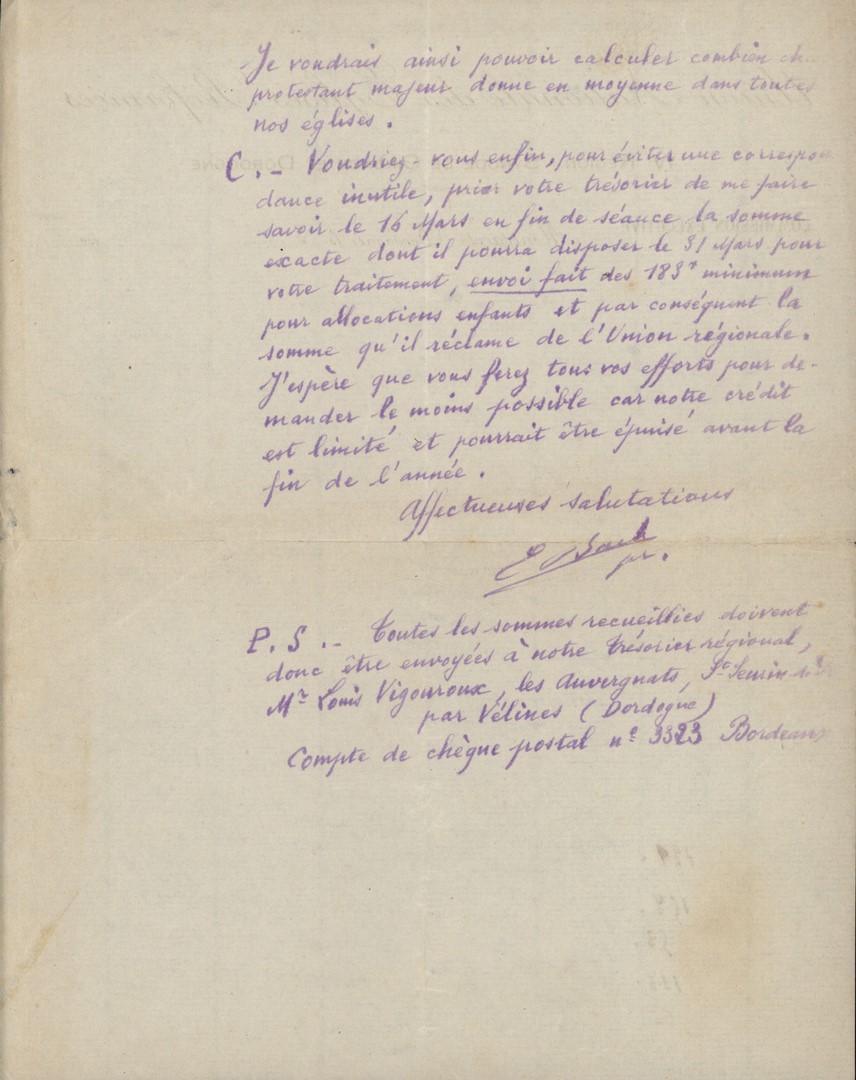 Je voudrais ainsi pouvoir calculer combien
protestant majeur donne en moyenne dans toutes
nos églises.
C. - Voudriez-vous enfin, pour éviter une correspon
dance inutile, prier votre trésorier de me faire
savoir le 16 Mars en fin de séance la somme
exacte dont il pourra disposer le 31 Mars pour
votre traitement, envoi fait des 183f minimum
pour allocations enfants et par conséquent la
somme qu'il réclame de l'Union régionale.
J'espère que vous ferez tous vos efforts pour de-
mander le moins possible car notre crédit
est limité et pourrait être épuisé avant la
fin de l'année.
Affectueuses salutations
P. S. - Toutes les sommes recueillies doivent
donc être envoyées à notre trésorier régional,
Mr Louis Vigouroux, les Auvergnats, St Seurin
par Vélines (Dordogne)
Compte de chèque postal n° 3323 Bordeaux